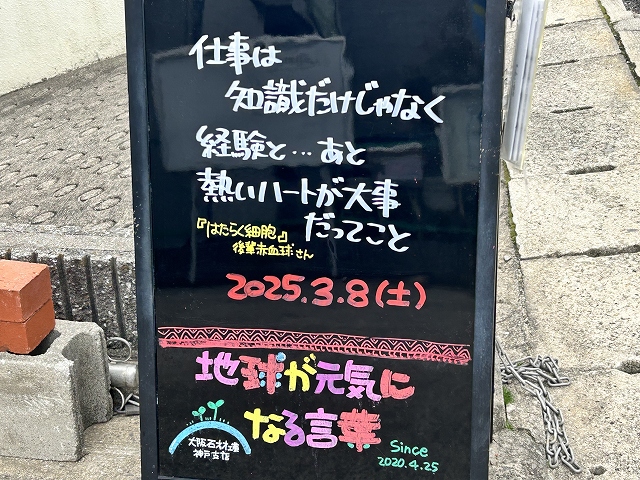 仕事は
知識だけじゃなく
経験と…あと
熱いハートが大事
だってこと
『はたらく細胞』
後輩赤血球さん
2025.3.8(土)
地球が元気に
なる言葉
大阪石材工業
神戸古店
Since
2020.4.25